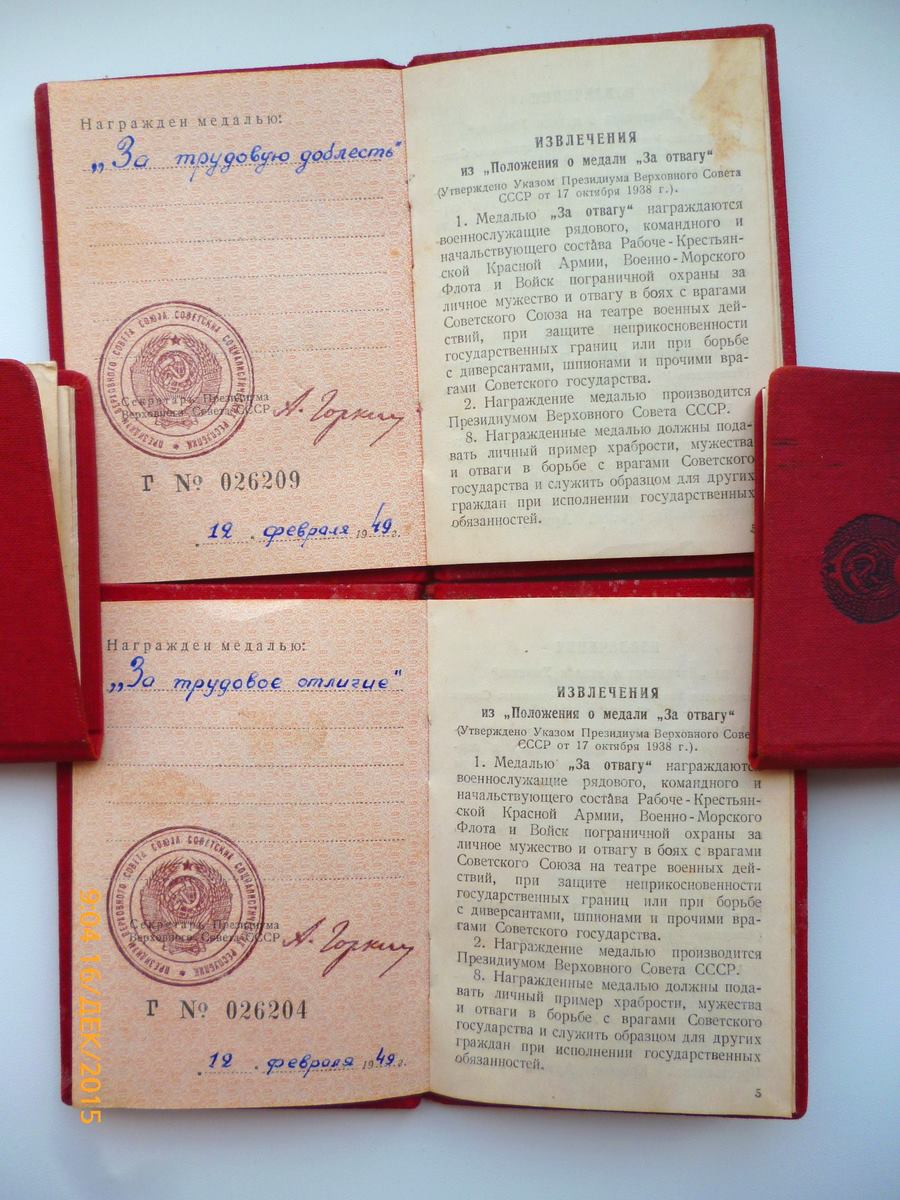 Награжден медалью:
„За трудовую доблесть"
ПРЕЗИДИУМ ВЕРХОВНОГО СОВЕТА СОЮЗА СОВЕТСКИХ СОЦИАЛИСТИЧЕСКИХ РЕСПУБЛИК
Секретарь Президиума
Верховного Совета СССР
А. Горкин
Г № 026209
12 февраля 1949 г.
ИЗВЛЕЧЕНИЯ
из „Положения о медали „За отвагу“
(Утверждено Указом Президиума Верховного Совета
СССР от 17 октября 1938 г.).
1. Медалью „За отвагу“ награждаются
военнослужащие рядового, командного и
начальствующего состава Рабоче-Крестьян-
ской Красной Армии, Военно-Морского
Флота и Войск пограничной охраны за
личное мужество и отвагу в боях с врагами
Советского Союза на театре военных дей-
ствий, при защите неприкосновенности
государственных границ или при борьбе
с диверсантами, шпионами и прочими вра-
гами Советского государства.
2. Награждение медалью производится
Президиумом Верховного Совета СССР.
8. Награжденные медалью должны пода-
вать личный пример храбрости, мужества
и отваги в борьбе с врагами Советского
государства и служить образцом для других
граждан при исполнении государственных
обязанностей.
5
Награжден медалью:
„За трудовое отличие"
ПРЕЗИДИУМ ВЕРХОВНОГО СОВЕТА СОЮЗА СОВЕТСКИХ СОЦИАЛИСТИЧЕСКИХ РЕСПУБЛИК
Секретарь Президиума
Верховного Совета СССР
А. Горкин
Г № 026204
12 февраля 1949 г.
ИЗВЛЕЧЕНИЯ
из „Положения о медали „За отвагу“
(Утверждено Указом Президиума Верховного Сове
СССР от 17 октября 1938 г.).
1. Медалью „За отвагу“ награждаютс
военнослужащие рядового, командного и
начальствующего состава Рабоче-Крестьян-
ской Красной Армии, Военно-Морского
Флота и Войск пограничной охраны за
личное мужество и отвагу в боях с врагами
Советского Союза на театре военных дей-
ствий, при защите неприкосновенности
государственных границ или при борьбе
с диверсантами, шпионами и прочими вра-
гами Советского государства.
2. Награждение медалью производится
Президиумом Верховного Совета СССР.
8. Награжденные медалью должны пода-
вать личный пример храбрости, мужества
и отваги в борьбе с врагами Советского
государства и служить образцом для других
граждан при исполнении государственных
обязанностей.
5
9:04 16/ДЕК/2015